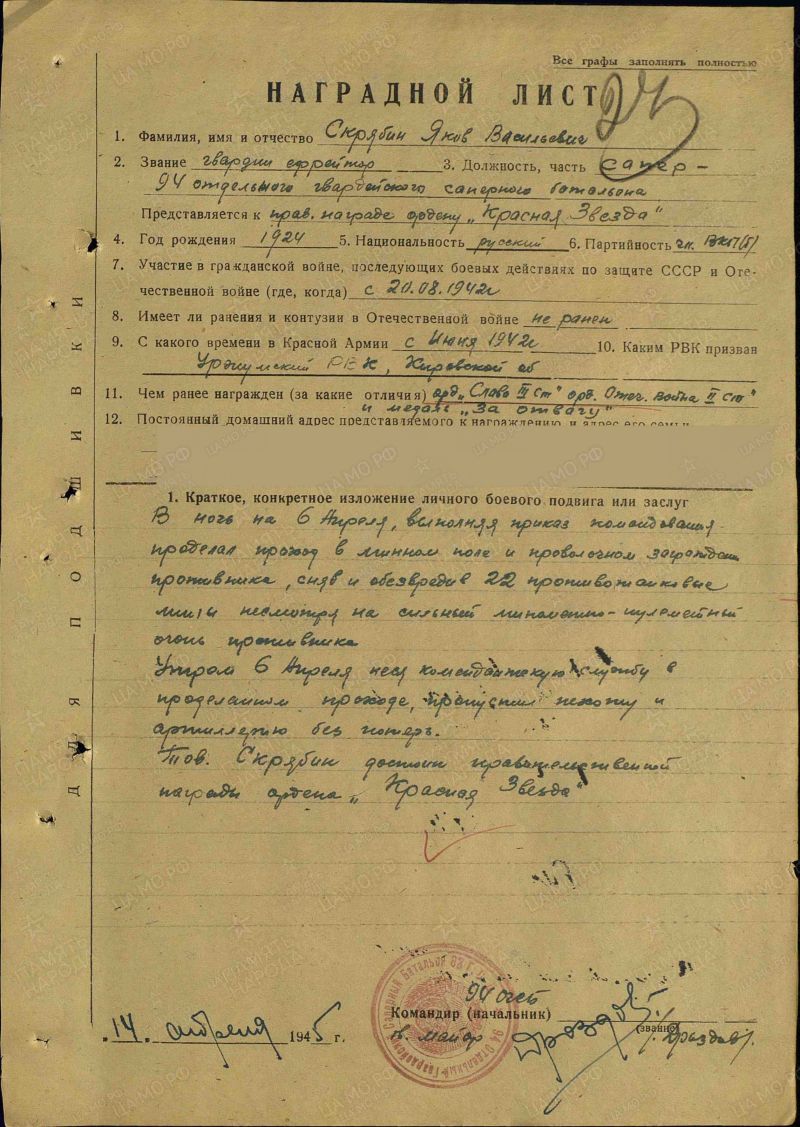 Все графы заполнять полностью
НАГРАДНОЙ ЛИСТ
1. Фамилия, имя и отчество Скрябин Яков Васильевич
2. Звание гвардии ефрейтор 3. Должность, часть сапер -
94 отдельного гвардейского саперного батальона
Представляется к прав. награде ордену „Красная Звезда"
4. Год рождения 1924 5. Национальность русский 6. Партийность чл. ВКП(б)
7. Участие в гражданской войне, последующих боевых действиях по защите СССР и Оте-
чественной войне (где, когда) с 20.08.1942г
8. Имеет ли ранения и контузии в Отечественной войне не ранен
9. С какого времени в Красной Армии с Июня 1942г 10. Каким РВК призван
Уржумский РВК, Кировской об
11. Чем ранее награжден (за какие отличия) орд „Слава III ст" орд. Отеч. война II ст"
и медаль „За отвагу"
12. Постоянный домашний адрес представляемого к награждению и адрес его семьи
1. Краткое, конкретное изложение личного боевого подвига или заслуг
В ночь на 6 Апреля, выполняя приказ командования
проделал проход в минном поле и проволочном заграждении
противника, сняв и обезвредив 22 противотанковые
мины несмотря на сильный минометно-пулеметный
огонь противника
Утром 6 Апреля неся комендантскую службу в
проделанном проходе, пропустил пехоту и
артиллерию без потерь.
Тов. Скрябин достоин правительственной
награды ордена „Красная Звезда"
94 огсб
Командир (начальник)
гв. майор
(звание)
/Дроздов/.
14. апреля 1945 г.
ДЛЯ ПОДШИВКИ
94 Отдельный Гвардейский Саперный Батальон